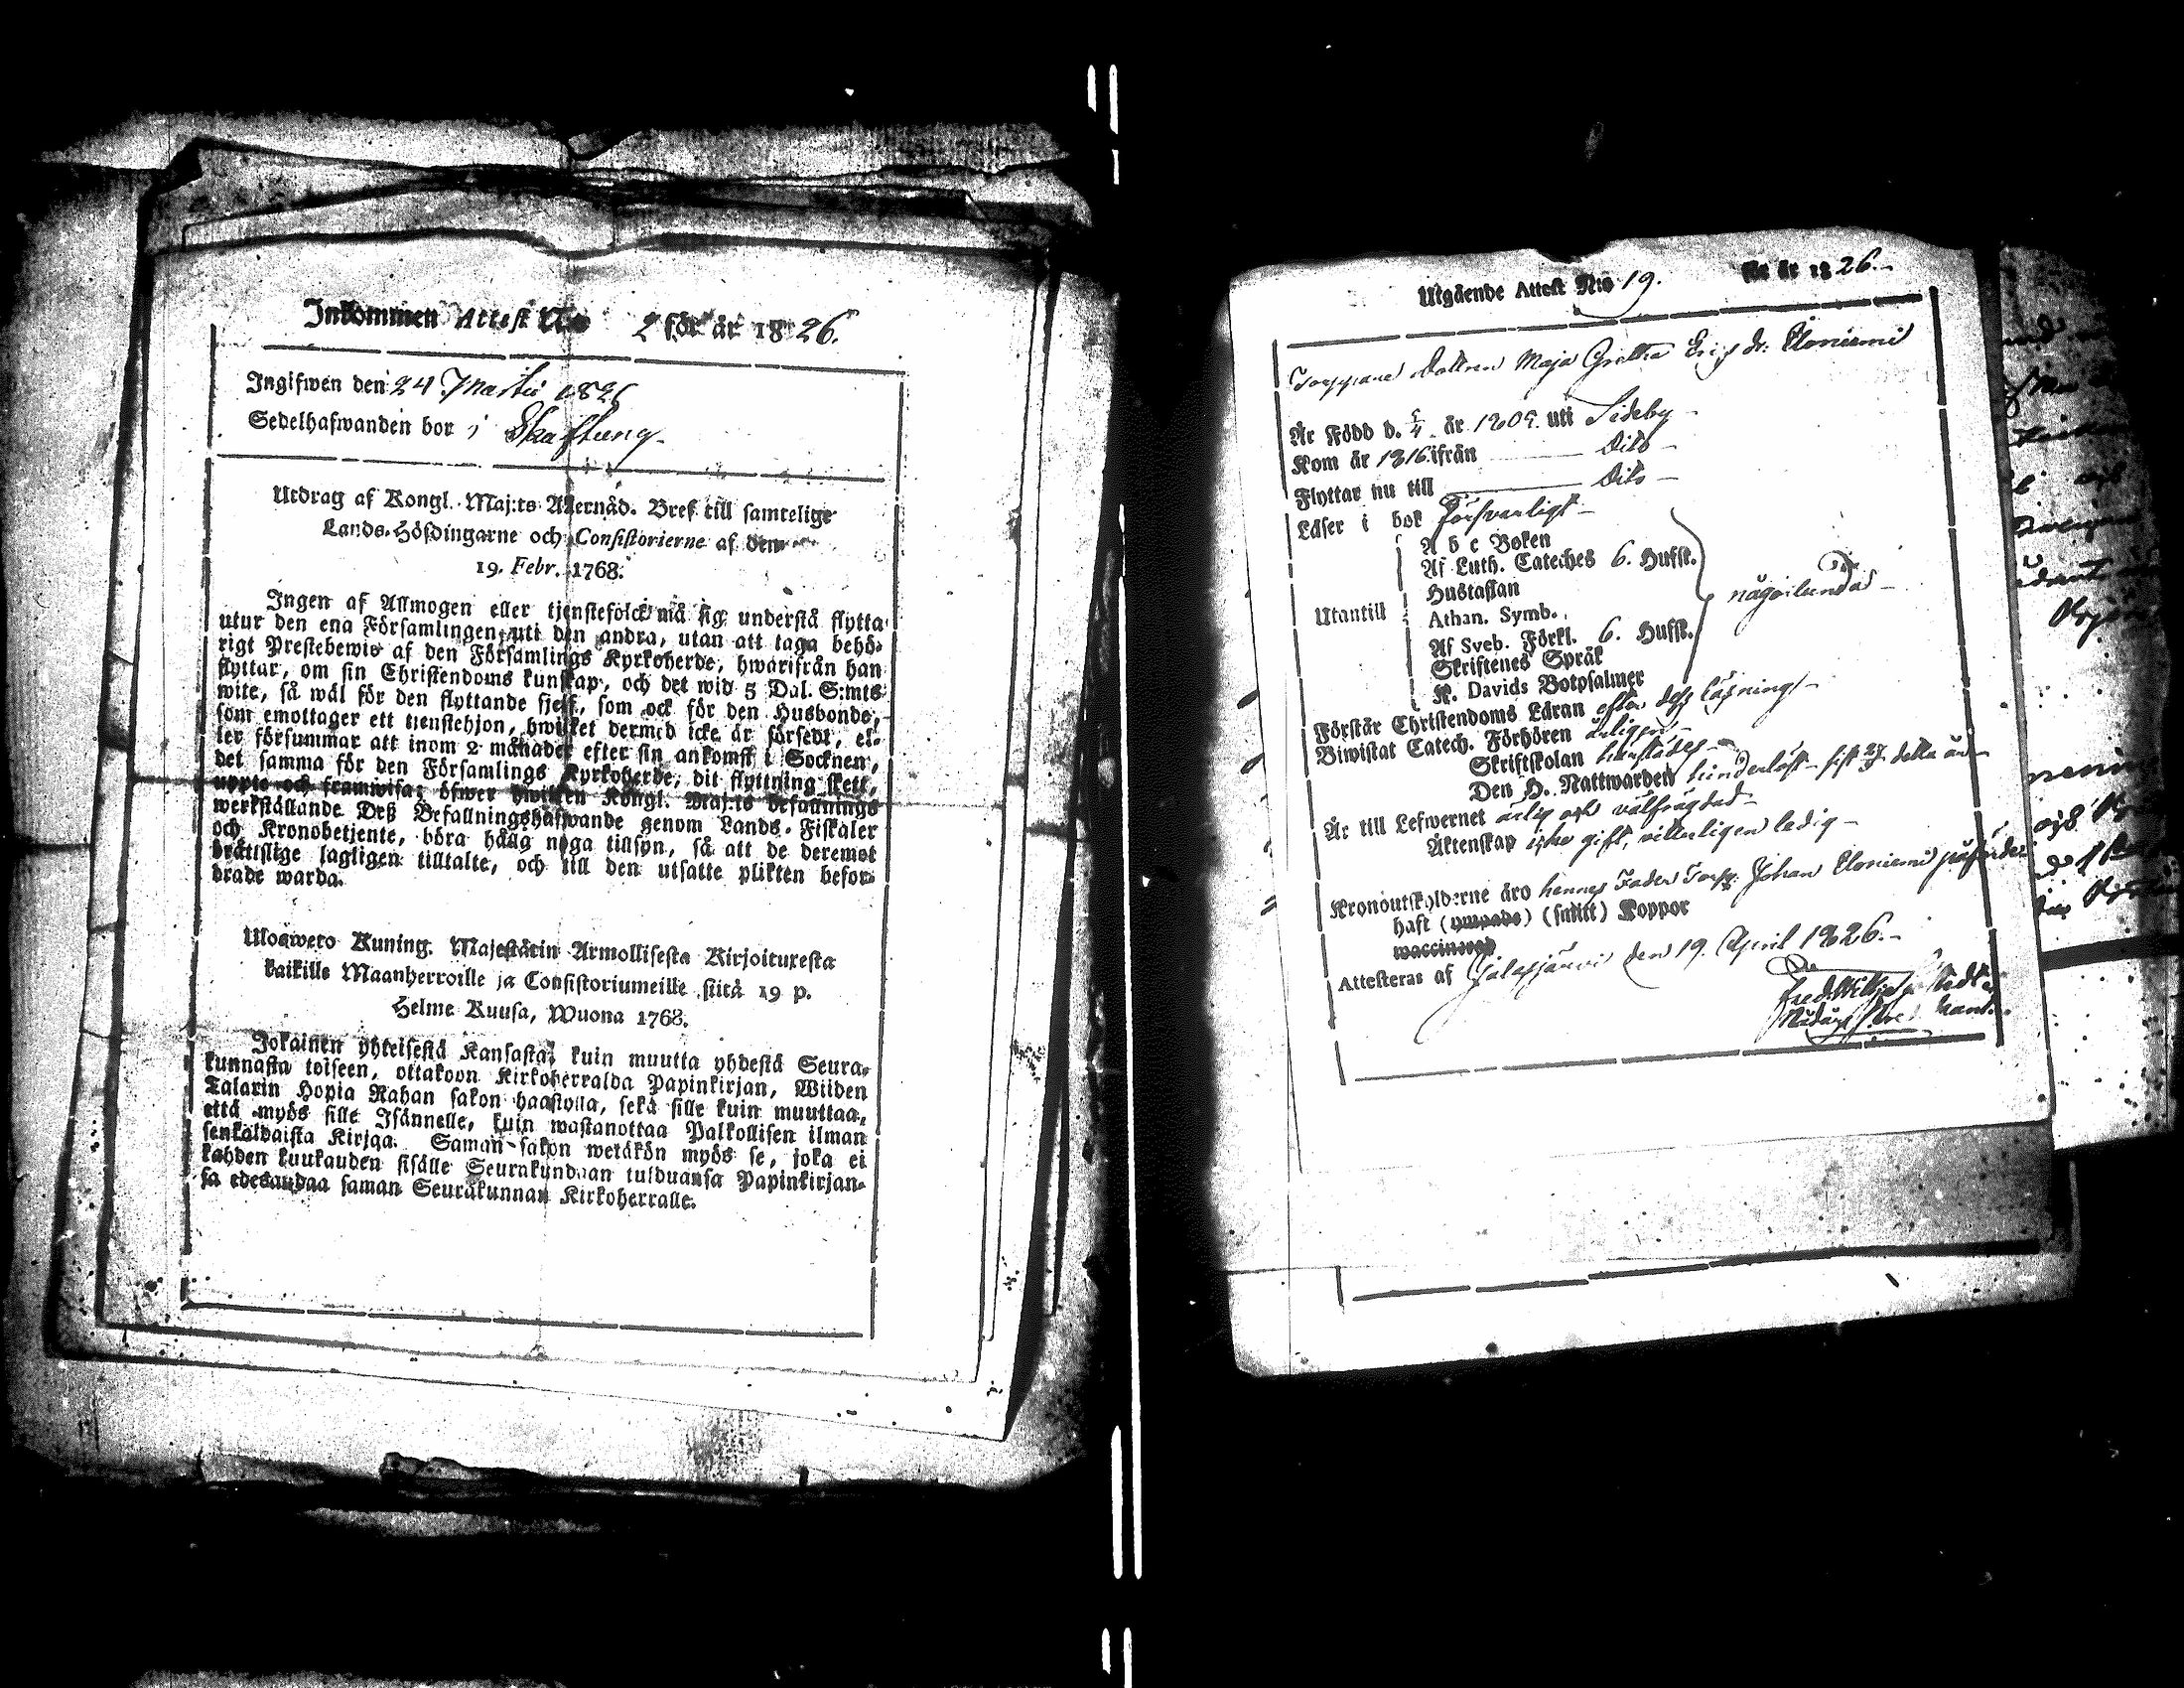 Inkommen Attest N:o 2 för år 1826.
Ingifwen den 24 Martii 1826
Sedelhafwanden bor i Skaftung
Utdrag af Kongl. Maj:ts Allernåd. Bref till samtelige
Lands-Höfdingarne och Consistorierne af den
19. Febr. 1768.
Ingen af Allmogen eller tjenstefolck må sig understå flytta
utur den ena Församlingen uti den andra, utan att taga behö-
rigt Prestebewis af den Församlings Kyrkoherde, hwarifrån han
flyttar, om sin Christendoms kunskap, och det wid 5 Dal. S:mts
wite, så wäl för den flyttande sjelf, som ock för den Husbonde,
som emottager ett tienstehjon, hwilket dermed icke är försedt, el-
ler försummar att inom 2 månader efter sin ankomst i Socknen,
det samma för den Församlings Kyrkoherde, dit flyttning skett,
uppte och framwisa; öfwer hwilken Kongl. Maj:ts befallnings
werkställande Deß Befallningshafwande genom Lands-Fiskaler
och Kronobetjente, böra hålla noga tillsyn, så att de deremot
brättslige lagligen tilltalte, och till den utsatte plikten befor-
drade warda.
Uloswero Kuning. Majestätin Armollisesta Kirjoituxesta
kaikille Maanherroille ja Consistoriumeille siitä 19 p.
Helme Kuusa, Wuona 1768.
Jokainen yhteisestä Kansasta, kuin muutta yhdestä Seura-
kunnasta toiseen, ottakoon Kirkoherralda Papinkirjan, Wiiden
Talarin Hopia Rahan sakon haastolla, sekä sille kuin muuttaa,
että myös sille Isännelle, kuin wastanottaa Palkollisen ilman
senkaldaista Kirjaa. Saman sakon wetäkön myös se, joka ei
kahden kuukauden sisälle Seurakundaan tulduansa Papinkirjan-
sa edesandaa saman Seurakunnan Kirkoherralle.
Utgående Attest N:o 19. för år 1826.
Torppare Dottren Maja Gretha Ericsdr: Eloniemi
Är Född d. 4 år 1809. uti Sideby
Kom år 1816 ifrån Dito
Flyttar nu till Dito
Läser i bok försvarligt
A b c Boken
Af Luth. Cateches 6. Hufst.
Hustaflan
Utantill Athan. Symb. någorlunda
Af Sveb. Förkl. 6. Hufst.
Skriftenes Språk
K. Davids Botpsalmer
Förstår Christendoms Läran efter dess läsning
Biwistat Catech. Förhören årligen
Skriftskolan härstädes
Den H. Nattwarden hinderlöst sist detta år
Är till Lefwernet ärlig och välfrägdad
Äktenskap icke gift, vitterligen ledig
Kronoutskylderne äro hennes Fader Torp. Johan Eloniemi påförde
haft (ympade) (smitt) Koppor
waccinerad
Attesteras af Jalasjärvi den 19. April 1826.